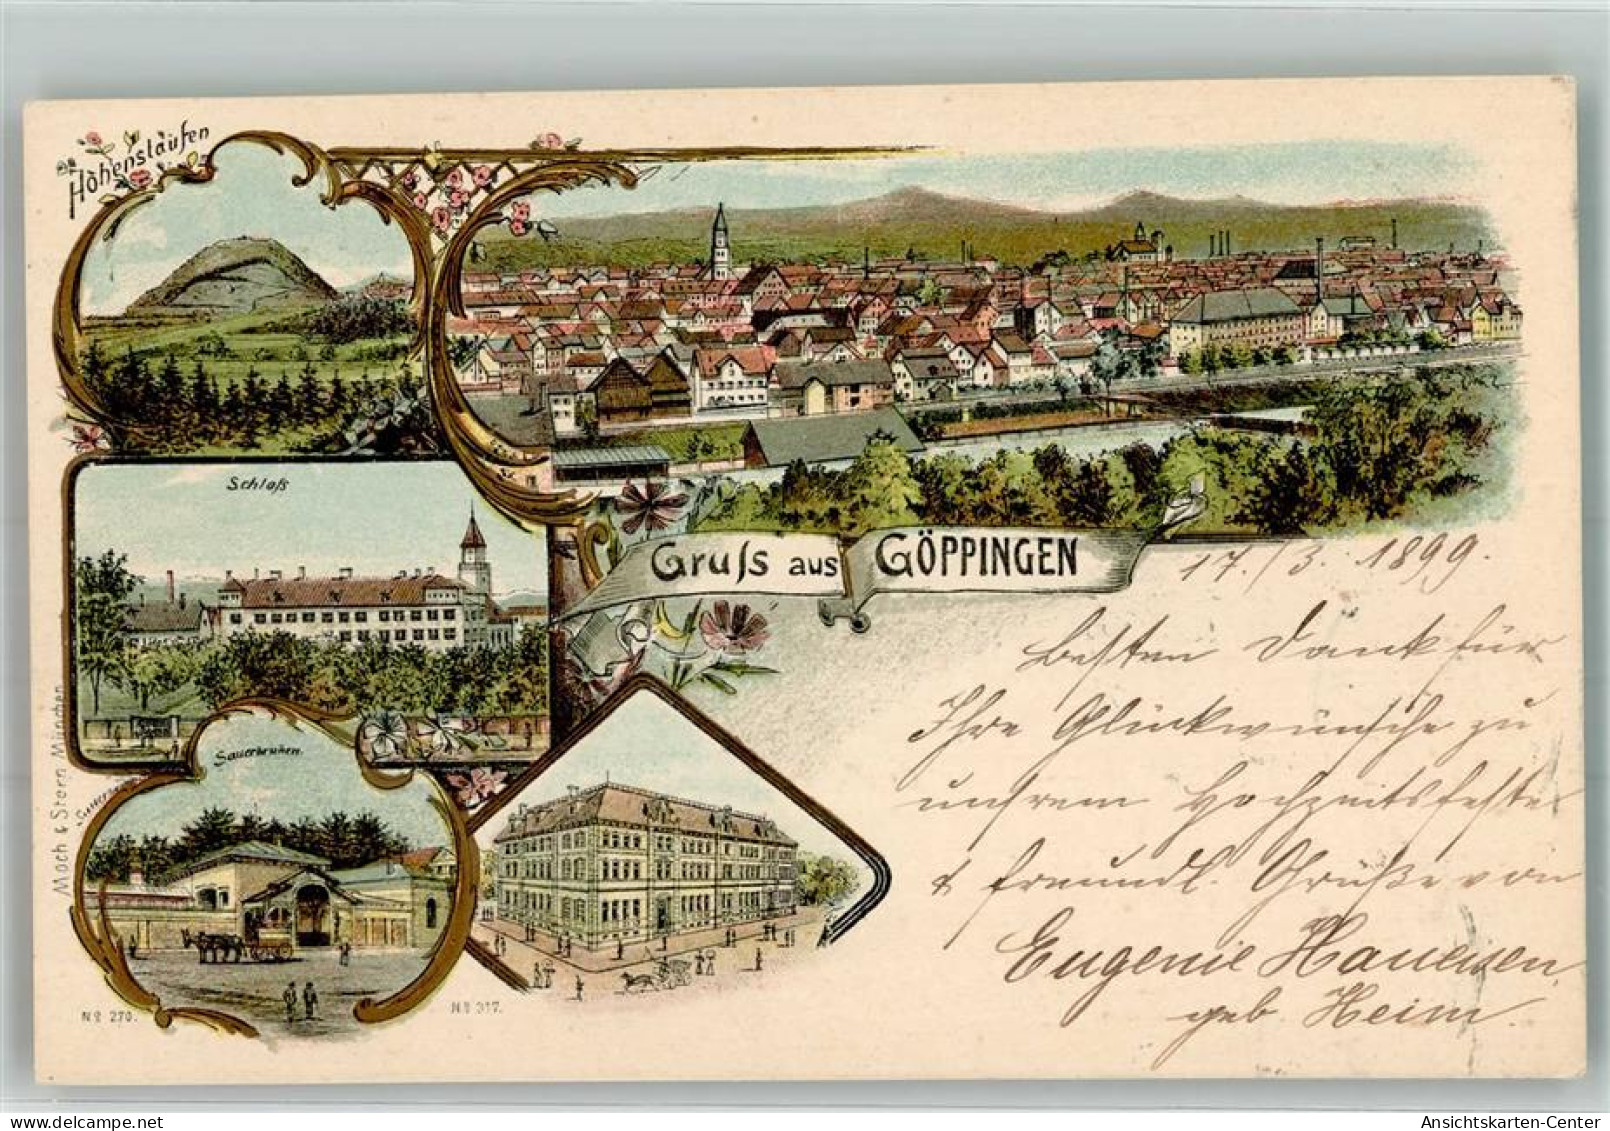 Hohenstaufen
Schloß
Sauerbrunnen.
Moch & Stern München
Gruß aus GÖPPINGEN
17./3. 1899.
Besten Dank für
Ihre Glückwünsche zu
unsrem Hochzeitsfeste
& freundl. Grüße von
Eugenie Haueisen,
geb. Heim.
No 270.
No 317.
Ansichtskarten-Center